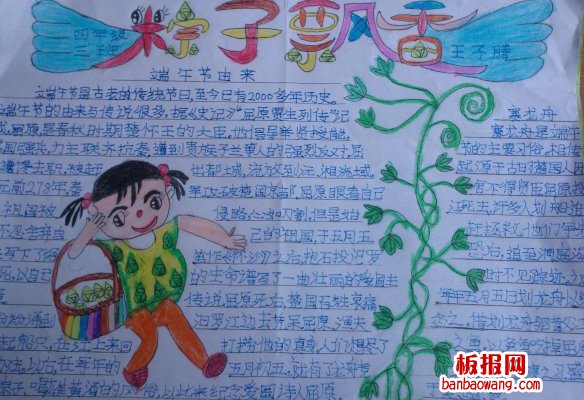 粽子飘香
四年级
三班
王子腾
端午节由来
端午节是古老的传统节日,至今已有2000多年历史。
端午节的由来与传说很多,据《史记》"屈原贾生列传"记
载,屈原是春秋时期楚怀王的大臣,他倡导举贤授能,
富国强兵,力主联齐抗秦,遭到贵族子兰等人的强烈反对,屈
遭谗去职,被赶出都城,流放到沅、湘流域。
元前278年,秦军攻破楚国京都。屈原眼看自己
祖国被侵略,心如刀割,但是始
不忍舍弃自己的祖国,于五月五
写下了绝笔作怀沙之后,抱石投汨罗
死,以自己的生命谱写了一曲壮丽的爱国主
传说屈原死后,楚国百姓哀痛
涌到汨罗江边去凭吊屈原。渔夫
船只,在江上来回打捞他的真身,人们想尽了
以后,在每年的五月初五,就有了龙舟竞
粽子、喝雄黄酒的风俗,以此来纪念爱国诗人屈原。
赛龙舟
赛龙舟是端午
节的主要习俗。相传
起源于古时楚国
人舍不得贤臣屈原
江死去,许多人划船追赶
拯救。他们争先
恐后,追至洞庭
时不见踪迹
年五月五日划龙舟以
念之。借划龙舟驱散
之鱼,以免鱼吃掉屈原
板报网
banbaowang.com